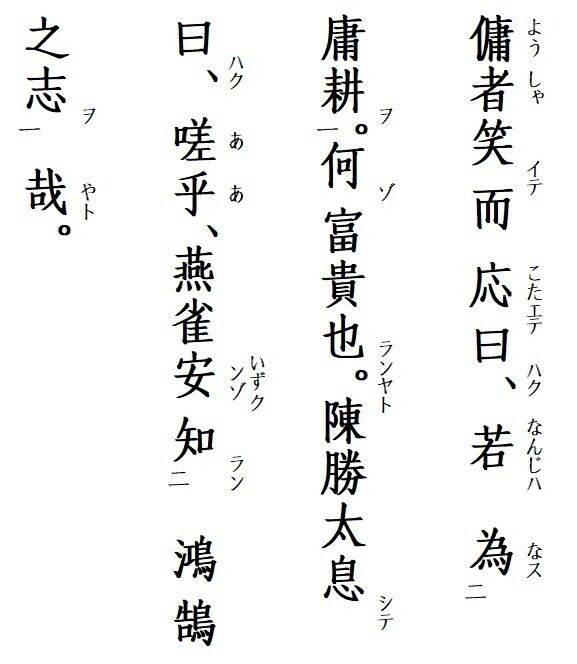 傭者笑而応曰、若為二
庸耕一。何富貴也。陳勝太息
曰、嗟乎、燕雀安知二鴻鵠
之志一哉。
よう しゃ イテ こたエテ ハク なんじハ なス
ヲ ゾ ランヤト シテ
ハク あ あ いずクンゾ ラン
ヲ やト